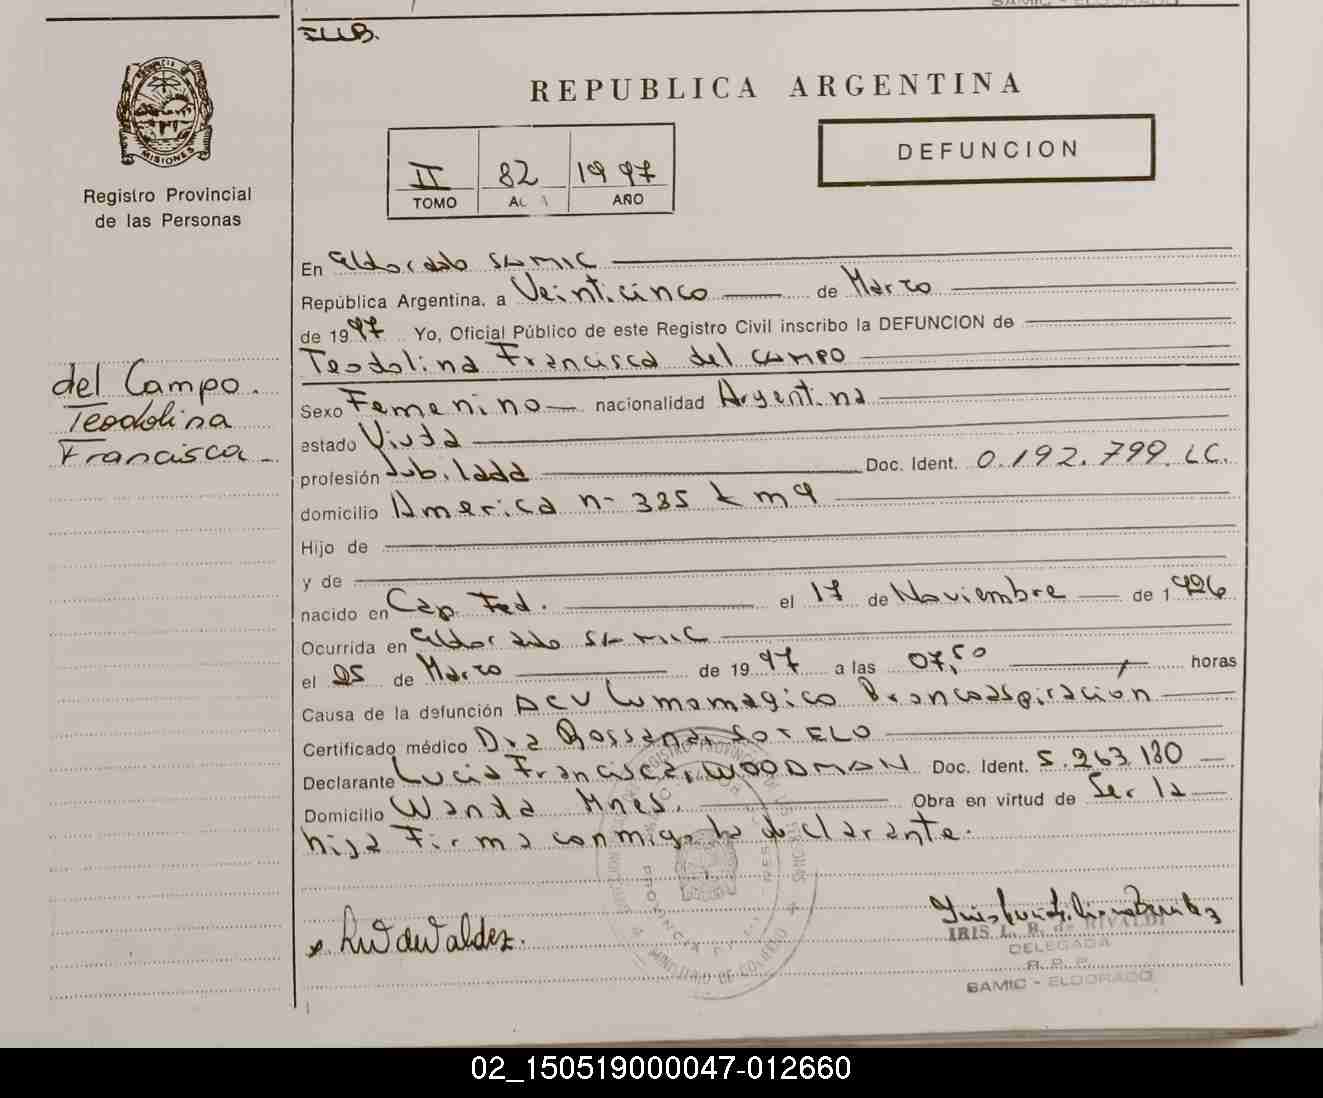 SAMIC - ELDORADO
REPUBLICA ARGENTINA
DEFUNCION
MISIONES
Registro Provincial
de las Personas
II 82 1997
TOMO AC A AÑO
En Eldorado SAMIC
República Argentina, a Veinticinco de Marzo
de 1997 Yo, Oficial Público de este Registro Civil inscribo la DEFUNCION de
Teodolina Francisca del Campo
del Campo.
Teodolina
Francisca
Sexo Femenino nacionalidad Argentina
estado Viuda
profesión Jubilada Doc. Ident. 0.192.799 LC.
domicilio America n- 335 km 9
Hijo de
y de
nacido en Cap. Fed. el 17 de Noviembre de 1926
Ocurrida en Eldorado SAMIC
el 25 de Marzo de 1997 a las 07,50 horas
Causa de la defunción ACV Broncoaspiracion
Certificado médico Dra Rossana SOTELO
Declarante Lucia Francisca WOODMAN Doc. Ident. 5.263.180
Domicilio Wanda Mnes. Obra en virtud de Ser la
hija Firma conmigo la declarante.
IRIS L. R. de RIVALDI
DELEGADA
R. P. P.
SAMIC - ELDORADO
02_150519000047-012660